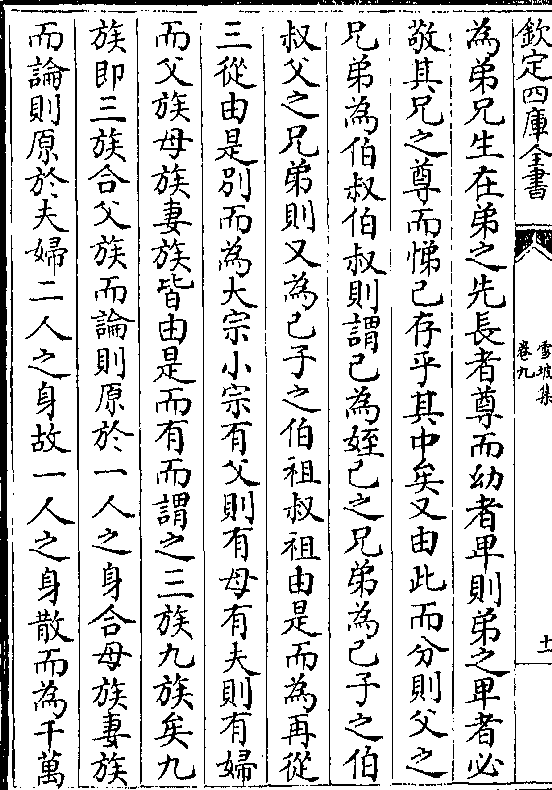 欽定四庫全書
雪坡集
卷九
十一
為弟兄生在弟之先長者尊而幼者卑則弟之卑者必
敬其兄之尊而悌已存乎其中矣又由此而分則父之
兄弟為伯叔伯叔則謂已為姪已之兄弟為已子之伯
叔父之兄弟則又為已子之伯祖叔祖由是而為再從
三從由是別而為大宗小宗有父則有母有夫則有婦
而父族母族妻族皆由是而有而謂之三族九族矣九
族即三族合父族而論則原於一人之身合母族妻族
而論則原於夫婦二人之身故一人之身散而為千萬